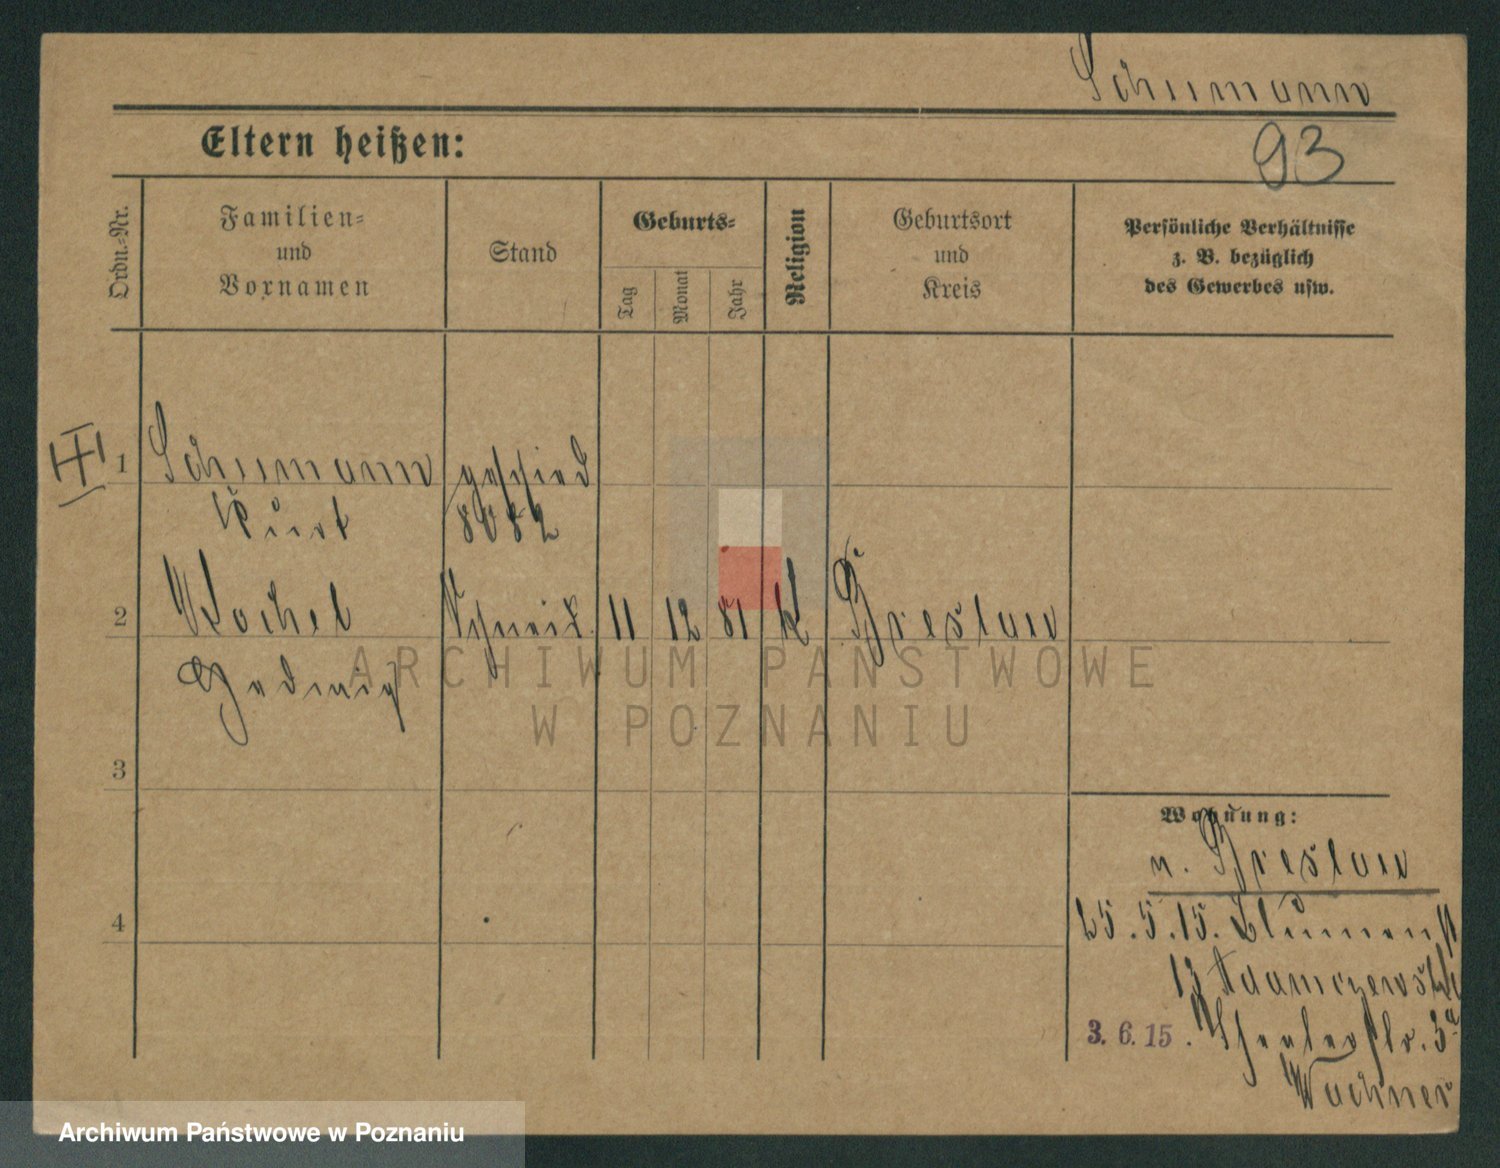 Schumann
Eltern heißen:
93
Ordn.-Nr.
Familien-
und
Vornamen
Stand
Geburts-
Tag
Monat
Jahr
Religion
Geburtsort
und
Kreis
Persönliche Verhältnisse
z. B. bezüglich
des Gewerbes usw.
III
1 Schumann geschied
Kurt
2 11 12 81 K Breslau
Hedwig
ARCHIWUM PAŃSTWOWE
W POZNANIU
3
Wohnung:
n. Breslau
4
25.5.15. Blumenst
13 Adamczewski
3. 6. 15. Theaterstr. 3a
Wachner
Archiwum Państwowe w Poznaniu